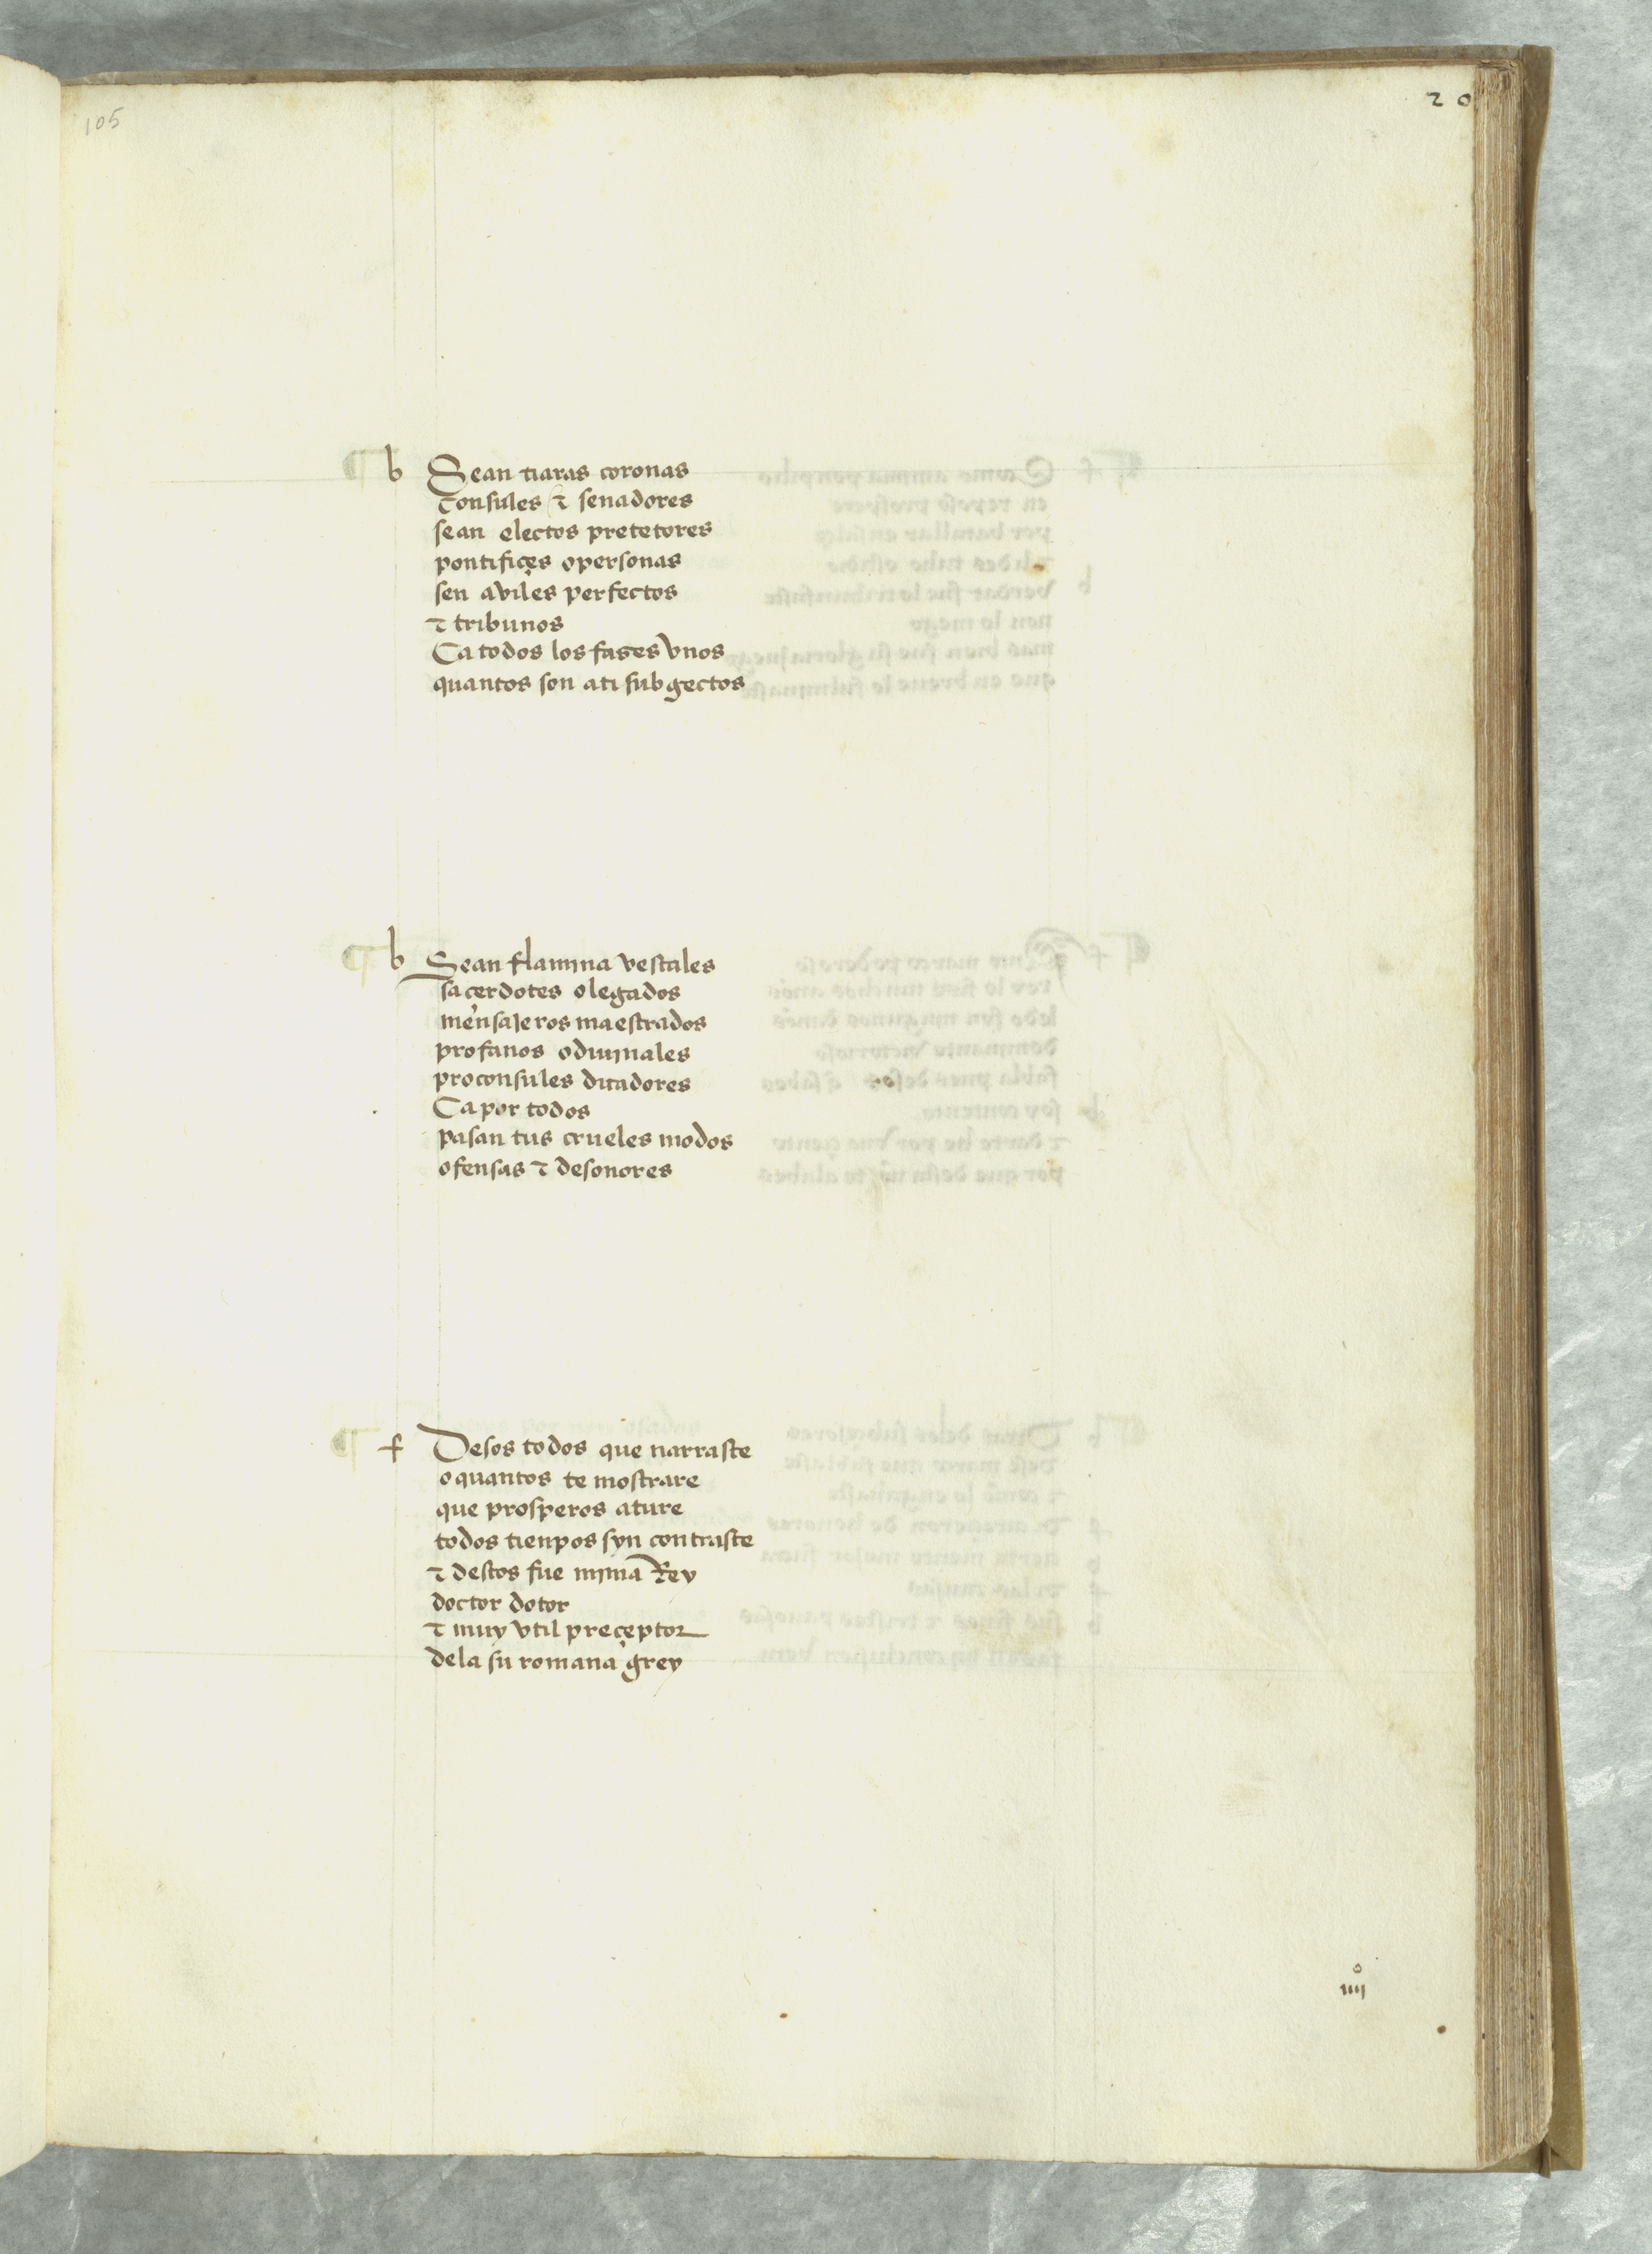 105
20
¶ b Sean tiaras coronas
consules ⁊ senadores
sean electos pretetores
pontifiçes o personas
sen aviles perfectos
⁊ tribunos
Ca todos los fases vnos
quantos son ati subgectos
¶ b Sean flamina vestales
sacerdotes olegados
mensajeros maestrados
profanos odiuinales
proconsules ditadores
Ca por todos
pasan tus crueles modos
ofensas ⁊ desonores
¶ f Desos todos que narraste
oquantos te mostrare
que prosperos ature
todos tienpos syn contraste
⁊ destos fue mjma Rey
doctor dotor
⁊ muy vtil preçeptor
dela su romana grey
iiijº